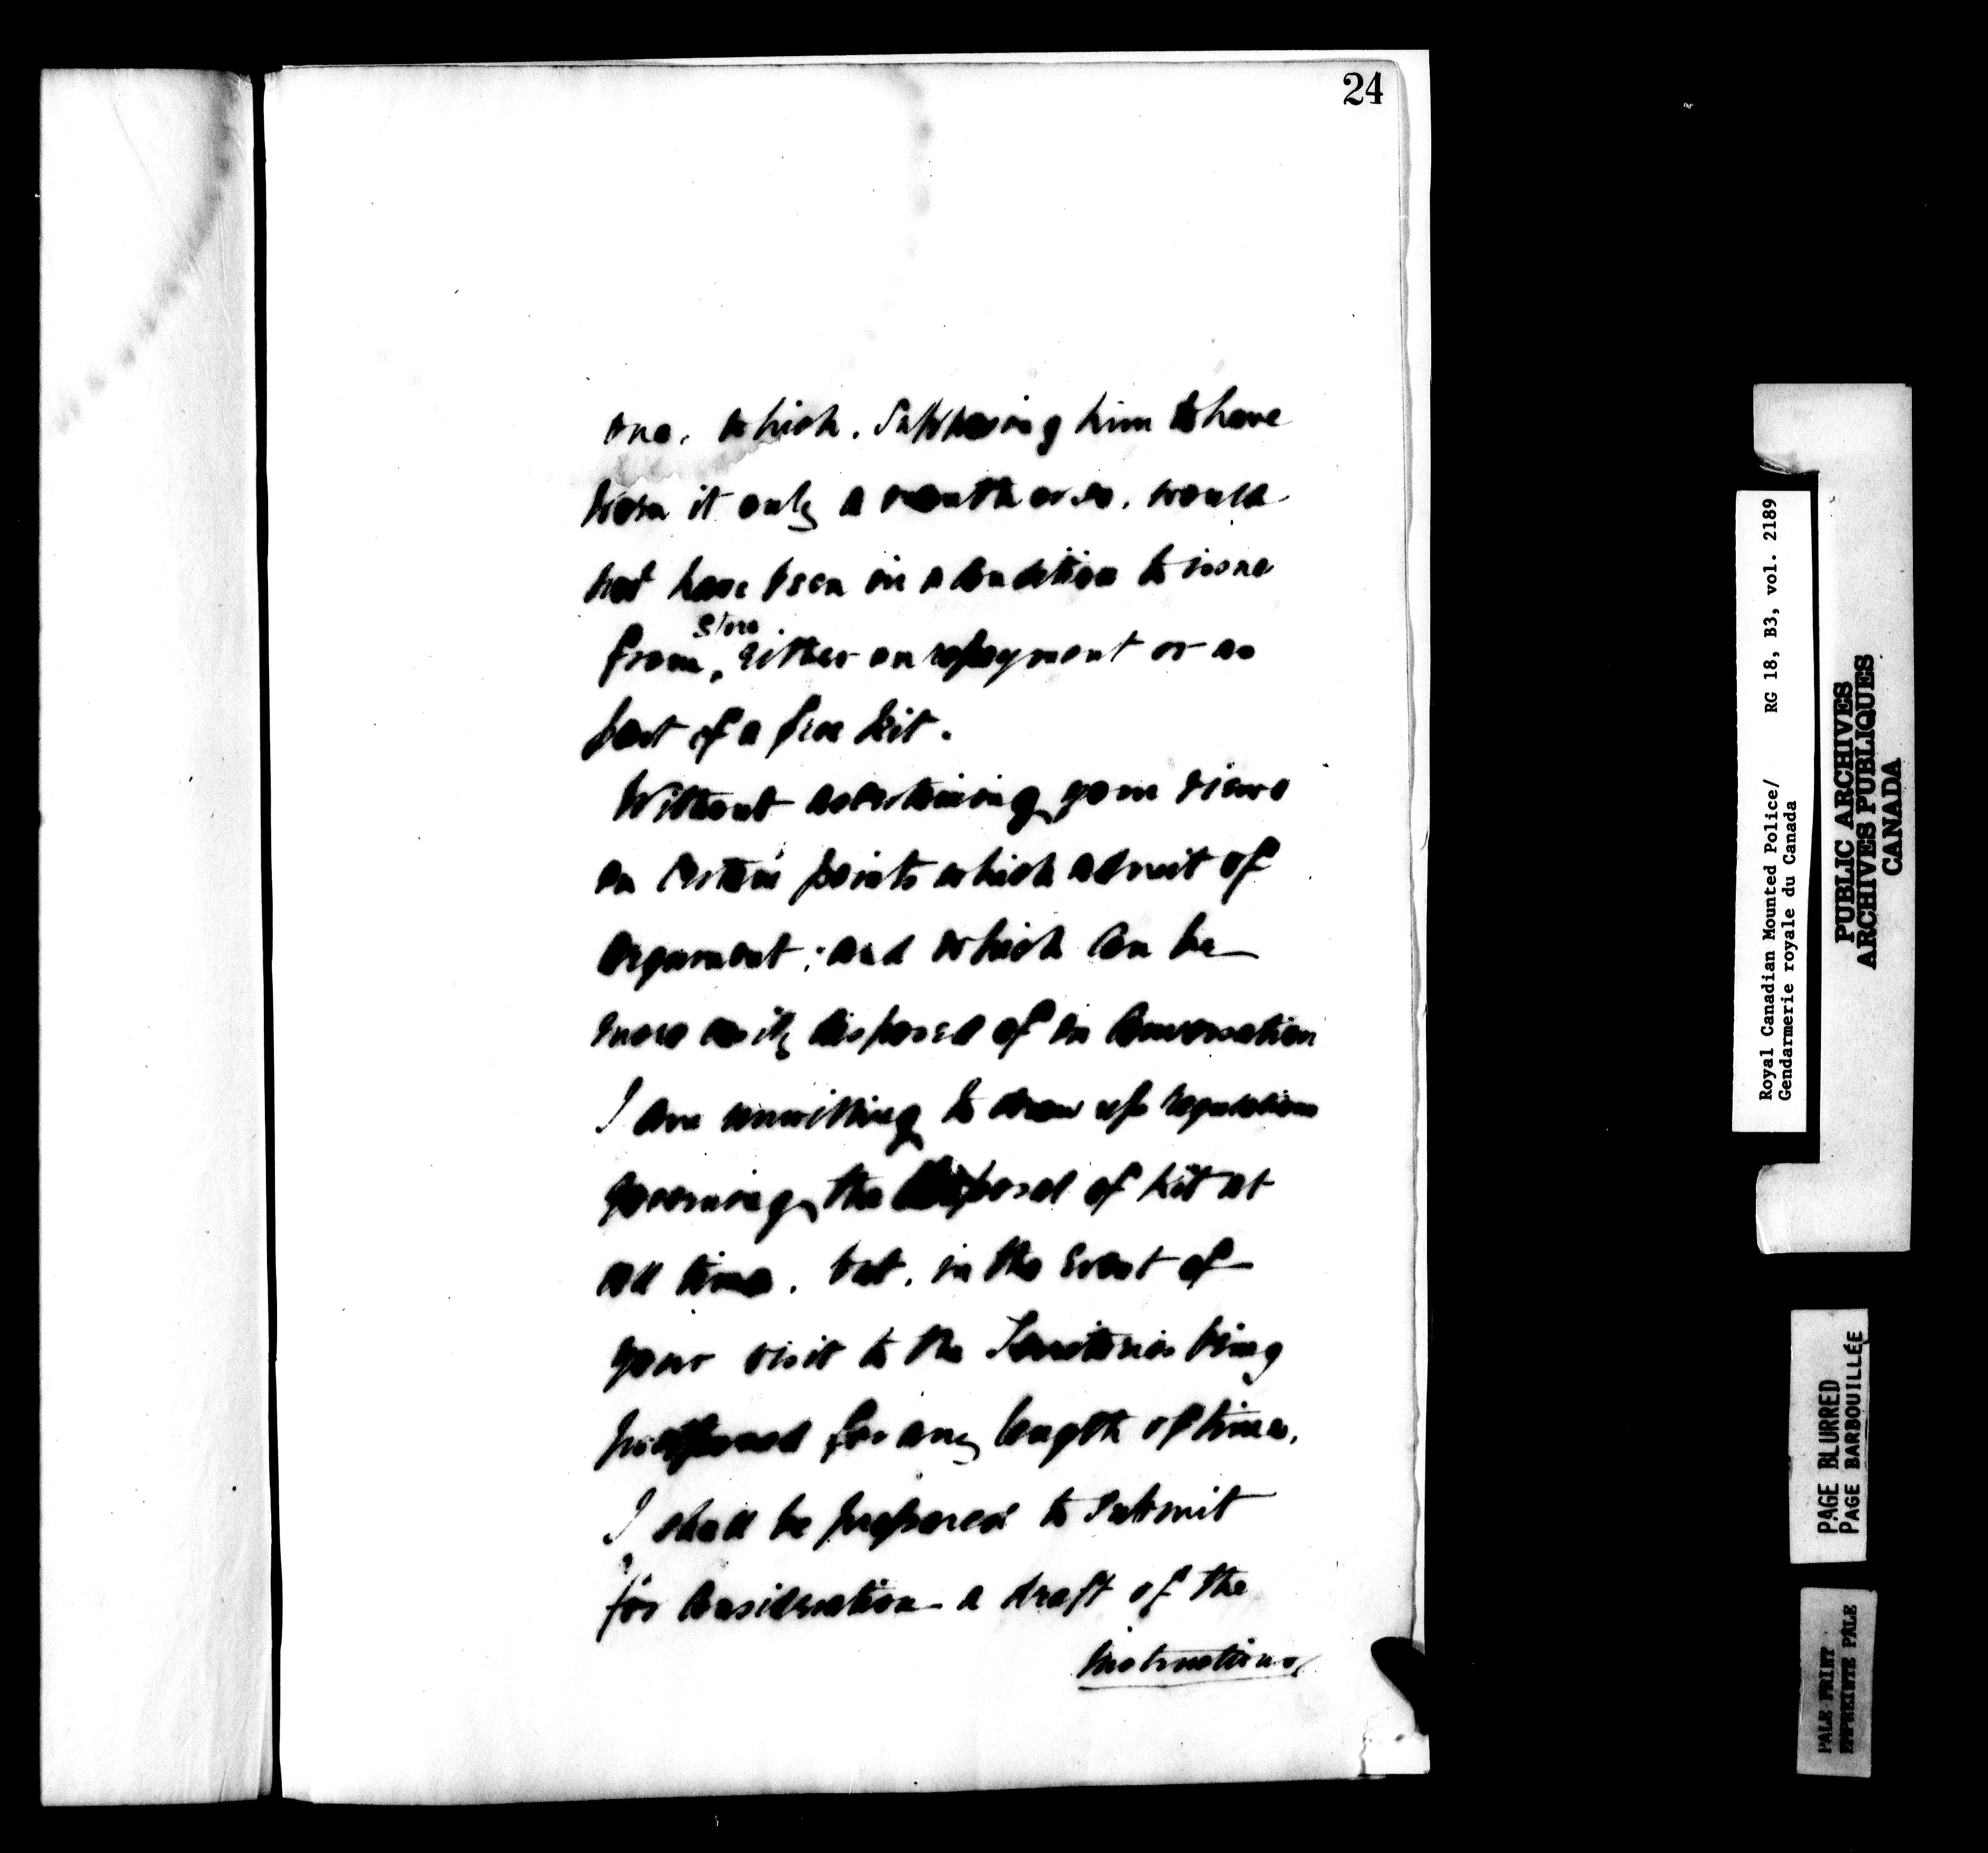 24
one, which, supposing him to have
worn it only a month or so, would
not have been in a condition to issue
from store, either on repayment or as
part of a free kit.
Without ascertaining your views
on certain points which admit of
argument, and which can be
more easily disposed of in conversation
I am unwilling to draw up regulations
governing the disposal of kit at
all times, but, in the event of
your visit to the Territories being
postponed for any length of time,
I shall be prepared to submit
for consideration a draft of the
instructions,
Royal Canadian Mounted Police/ RG 18, B3, vol. 2189
Gendarmerie royale du Canada
PUBLIC ARCHIVES
ARCHIVES PUBLIQUES
CANADA
PAGE BLURRED
PAGE BARBOUILLÉE
PALE PRINT
EMPREINTE PALE